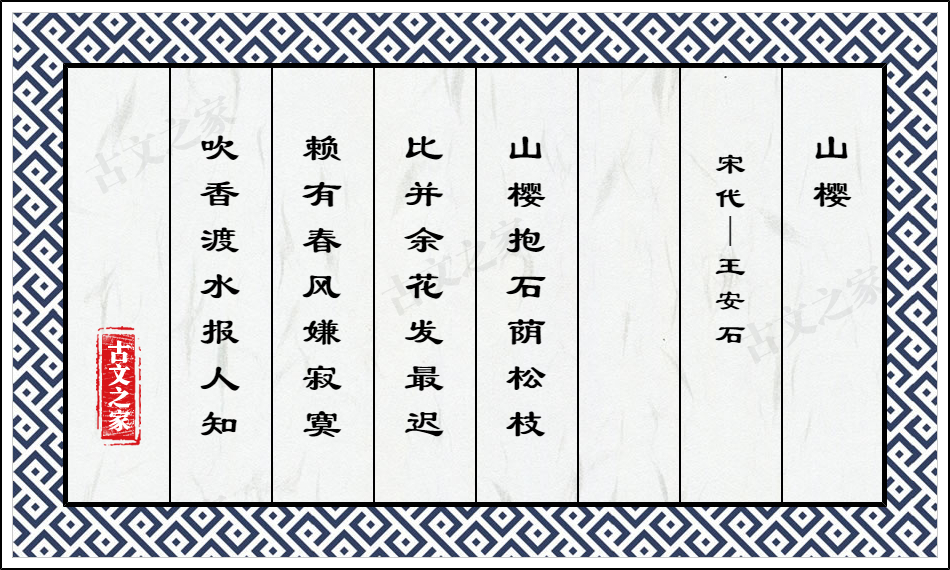 山樱
宋代—王安石
山樱抱石荫松枝
比并余花发最迟
赖有春风嫌寂寞
吹香渡水报人知
古文之家
古文之家
古文之家
古文之家